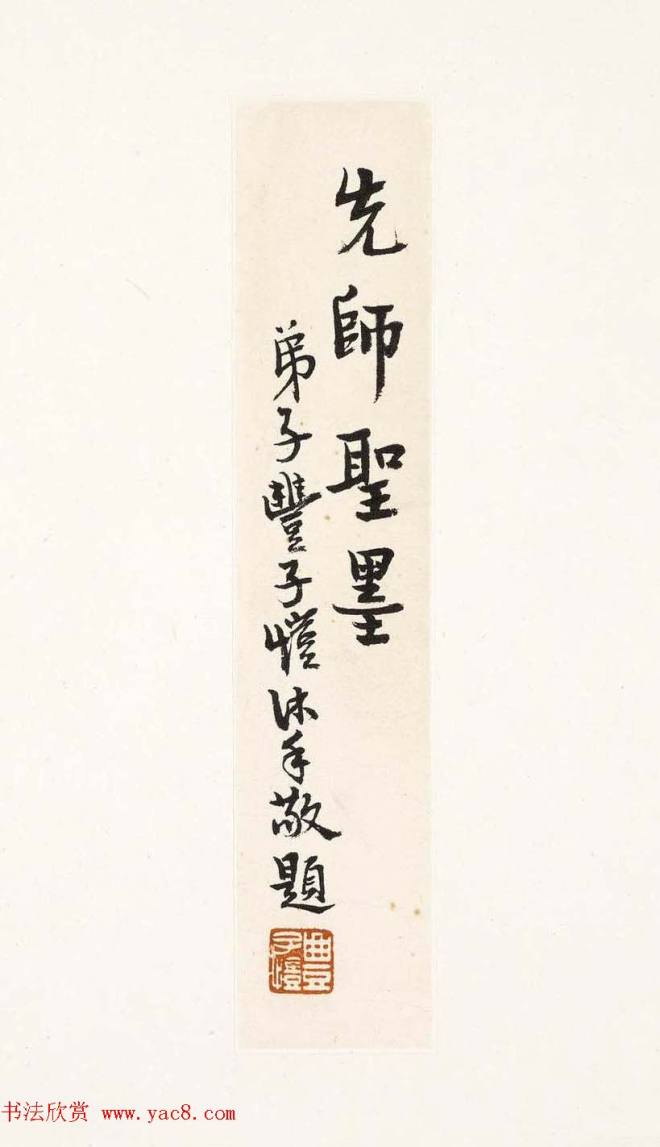 先師聖墨
弟子豐子愷沐手敬題
豐子愷
书法欣赏 www.yac8.com